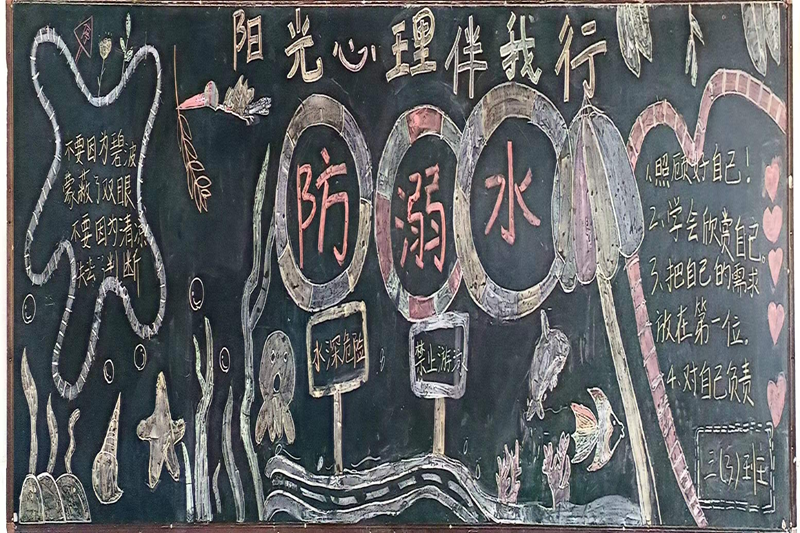 阳光心理伴我行
不要因为碧波
蒙蔽了双眼
不要因为清凉
失去判断
防溺水
水深危险
禁止游泳
1.照顾好自己！
2.学会欣赏自己。
3.把自己的需求
放在第一位。
4.对自己负责
三(3)班